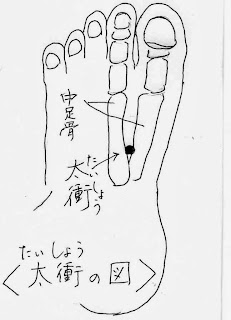 中足骨
太衝
たいしょう
たいしょう
〈太衝の図〉